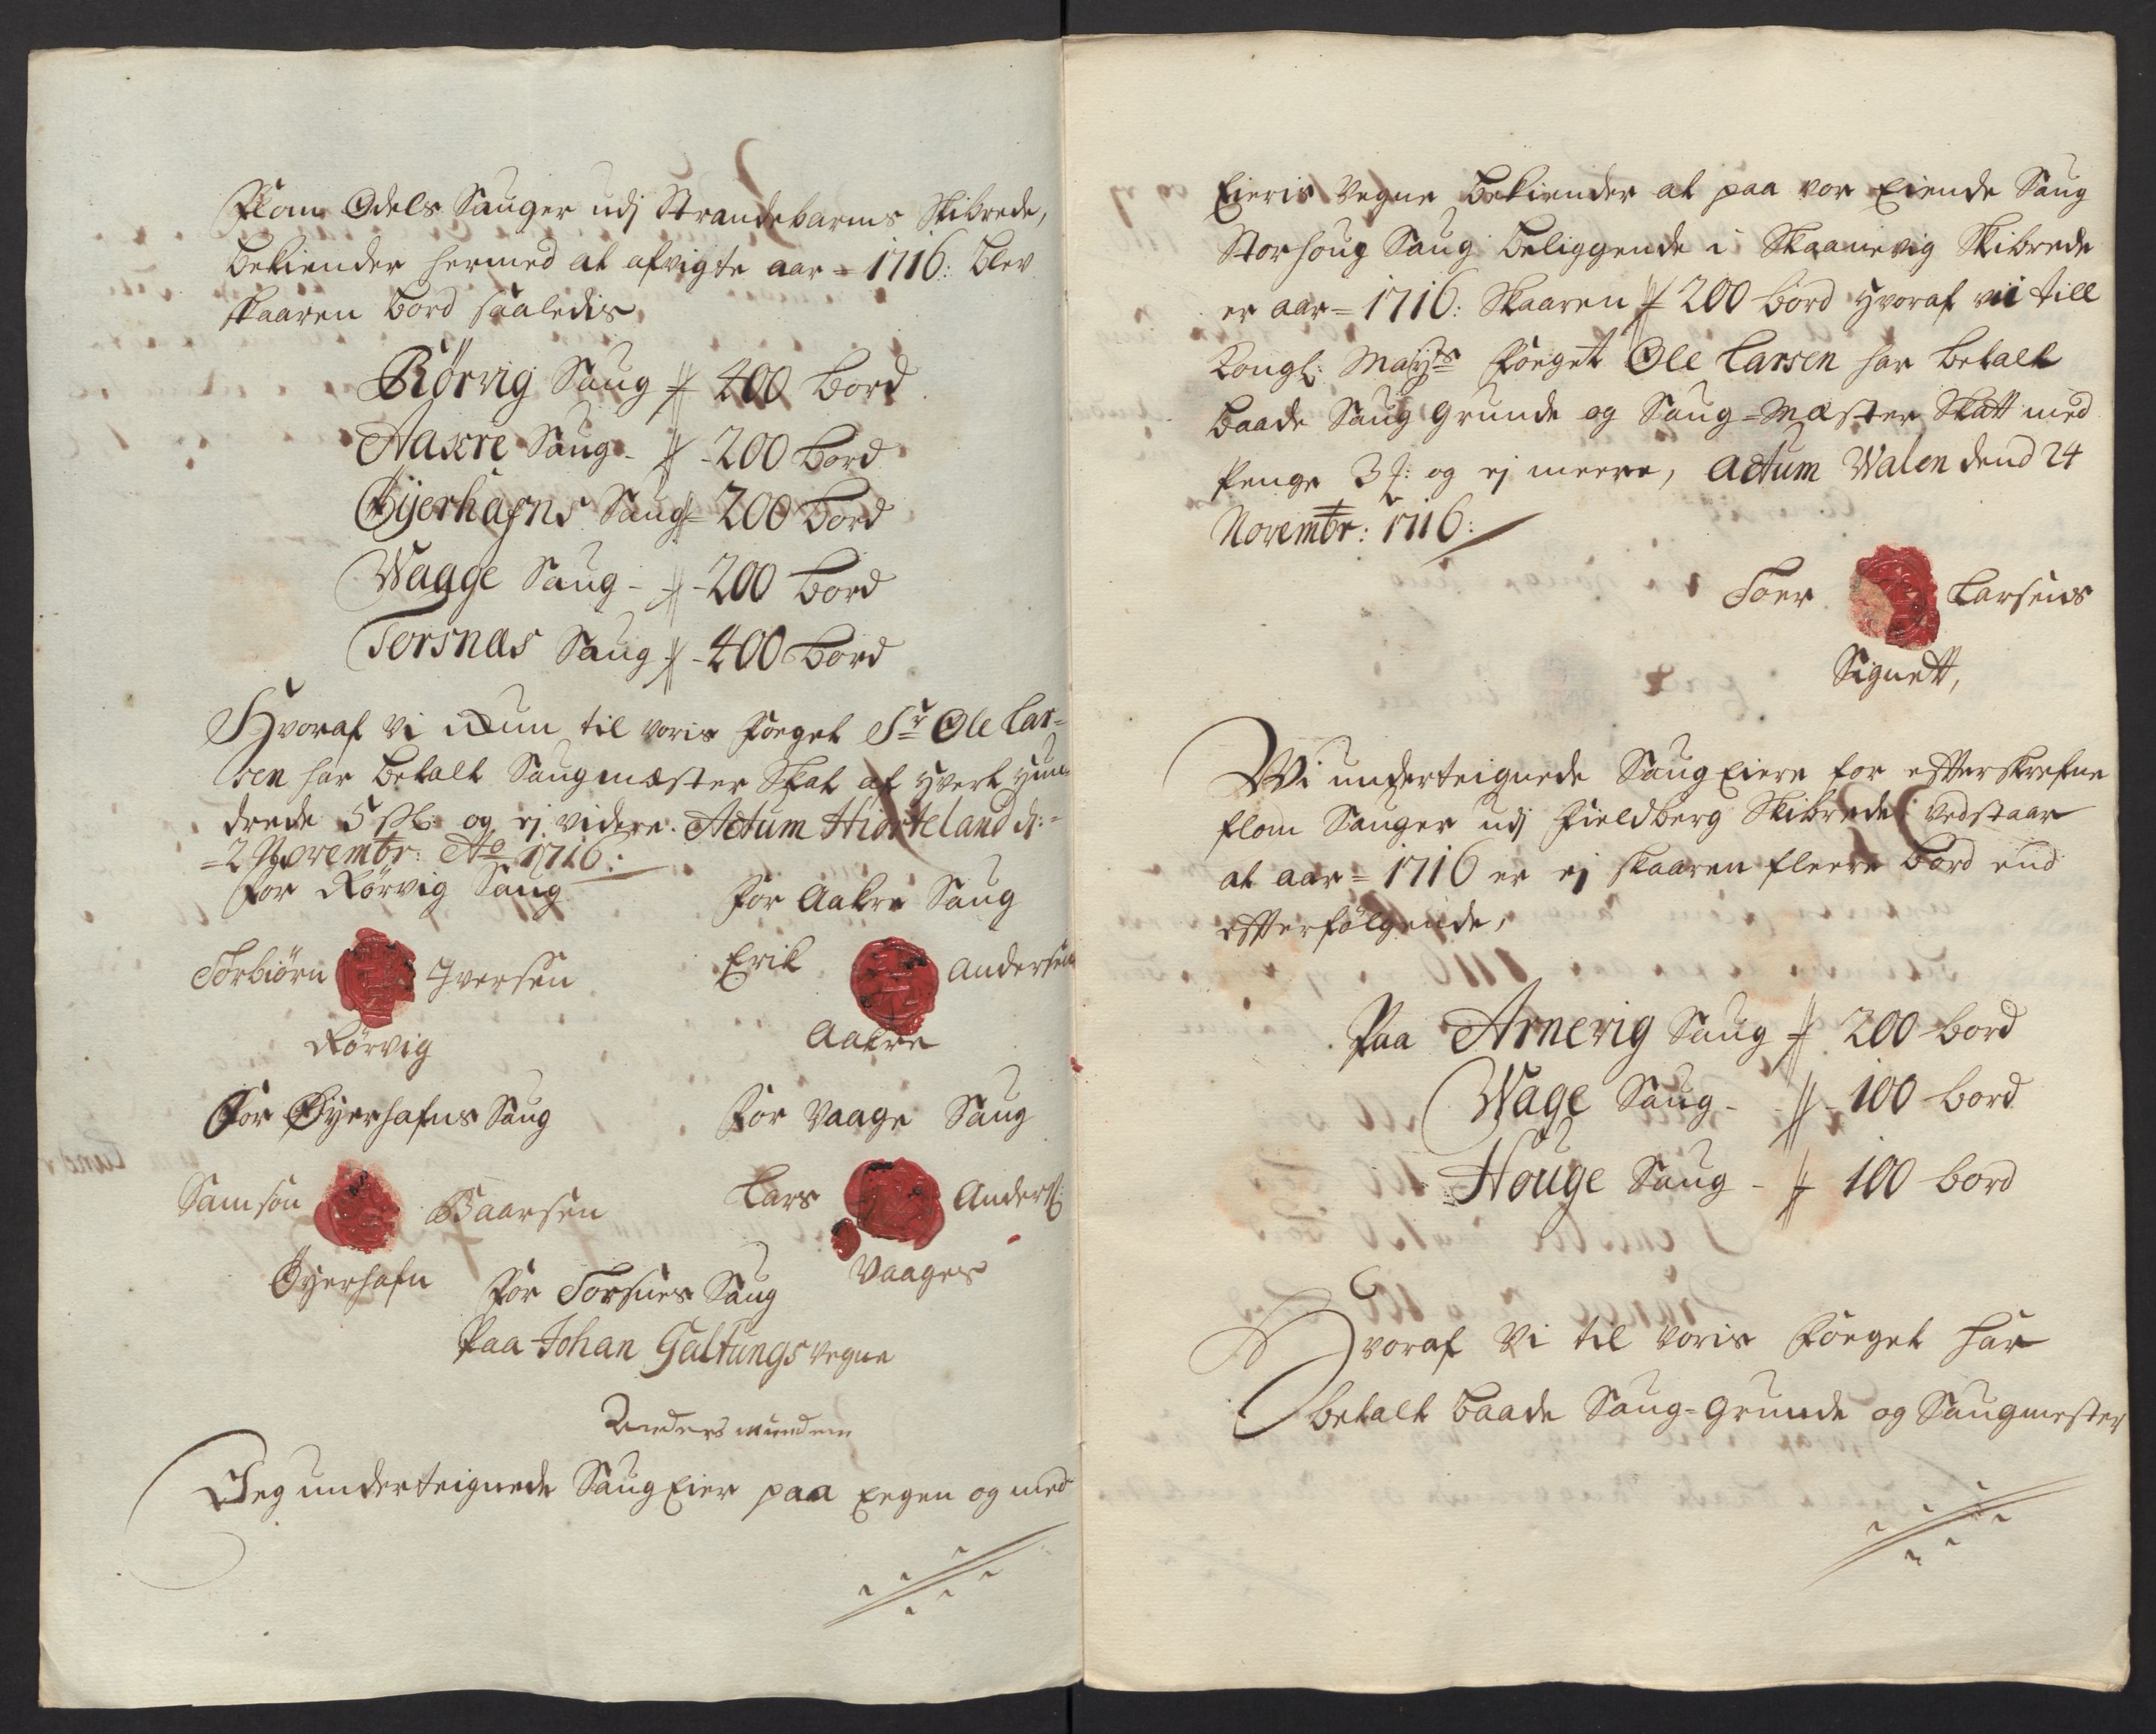 Flom Odels Sauger udj Strandebarms Skibrede,
bekiender hermed at afvigte aar = 1716: blev
skaaren bord saaledis
Rörvig Saug 400 bord
Aakre Saug - 200 bord
Öyerhafns Saug 200 bord
Waage Saug - 200 bord
Torsnæs Saug - 400 bord
Hvoraf vi nun til voris foeget Sr Ole Lar=
sen har betalt Saugmæster Skat af hvert hun
drede 5 sk: og ej videre. Actum Hiorteland d:=
=2 Novembr: Ao 1716:
for Rörvig Saug
for Aakre Saug
Torbiörn Iversen
Rörvig
Erik Andersen
Aakre
for Öyerhafns Saug
for Vaage Saug
Samson Baarsen
Öyerhafn
Lars Anders:
Vaages
for Torsnes Saug
Paa Johan Galtungs vegne
Anders
Jeg underteignede Saug Eier paa Eegen og med
Eieris Vegne bekiender at paa vor Eiende Saug
Storhoug Saug beliggende i Skaanevig Skibrede
er aar = 1716: Skaaren 200 bord hvoraf vii till
Kongl: Mayts foeget Ole Larsen har betalt
baade Saug Grunde og Saug-Mæster Skatt med
Penge 3 og ej meere, Actum Walen dend 24
Novembr: 1716:
Toer Larsens
Signett,
Wi underteignede Saug Eiere for efterskrefne
flom Sauger udj Fieldberg Skibrede vedstaar
at aar = 1716 er ej skaaren fleere bord end
efterfölgende,
Paa Arnevig Saug 200 bord
Wage Saug - 100 bord
Houge Saug - 100 bord
Hvoraf Vi til voris foeget har
betalt baade Saug-Grunde og Saugmester